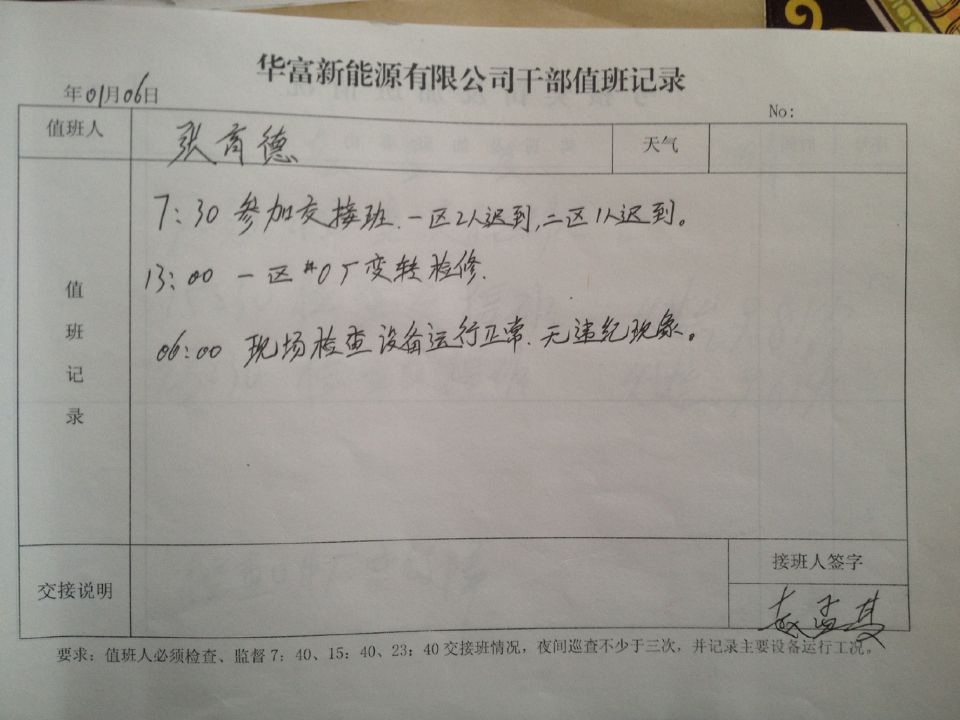 华富新能源有限公司干部值班记录
年01月06日
No:
值班人 张育德 天气
值班记录
7:30 参加交接班.一区2人迟到,二区1人迟到。
13:00 一区#0厂变转检修.
06:00 现场检查设备运行正常.无违纪现象。
交接说明
接班人签字
赵孟
要求：值班人必须检查、监督7：40、15：40、23：40交接班情况，夜间巡查不少于三次，并记录主要设备运行工况。